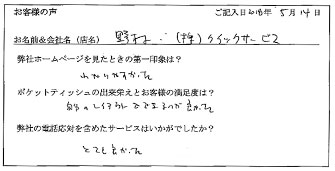 お客様の声 ご記入日2018年 5月14日
お名前&会社名(店名) 野村 (株)クイックサービス
弊社ホームページを見たときの第一印象は?
わかりやすかった
ポケットティッシュの出来栄えとお客様の満足度は?
弊社の電話応対を含めたサービスはいかがでしたか?
とても良かった